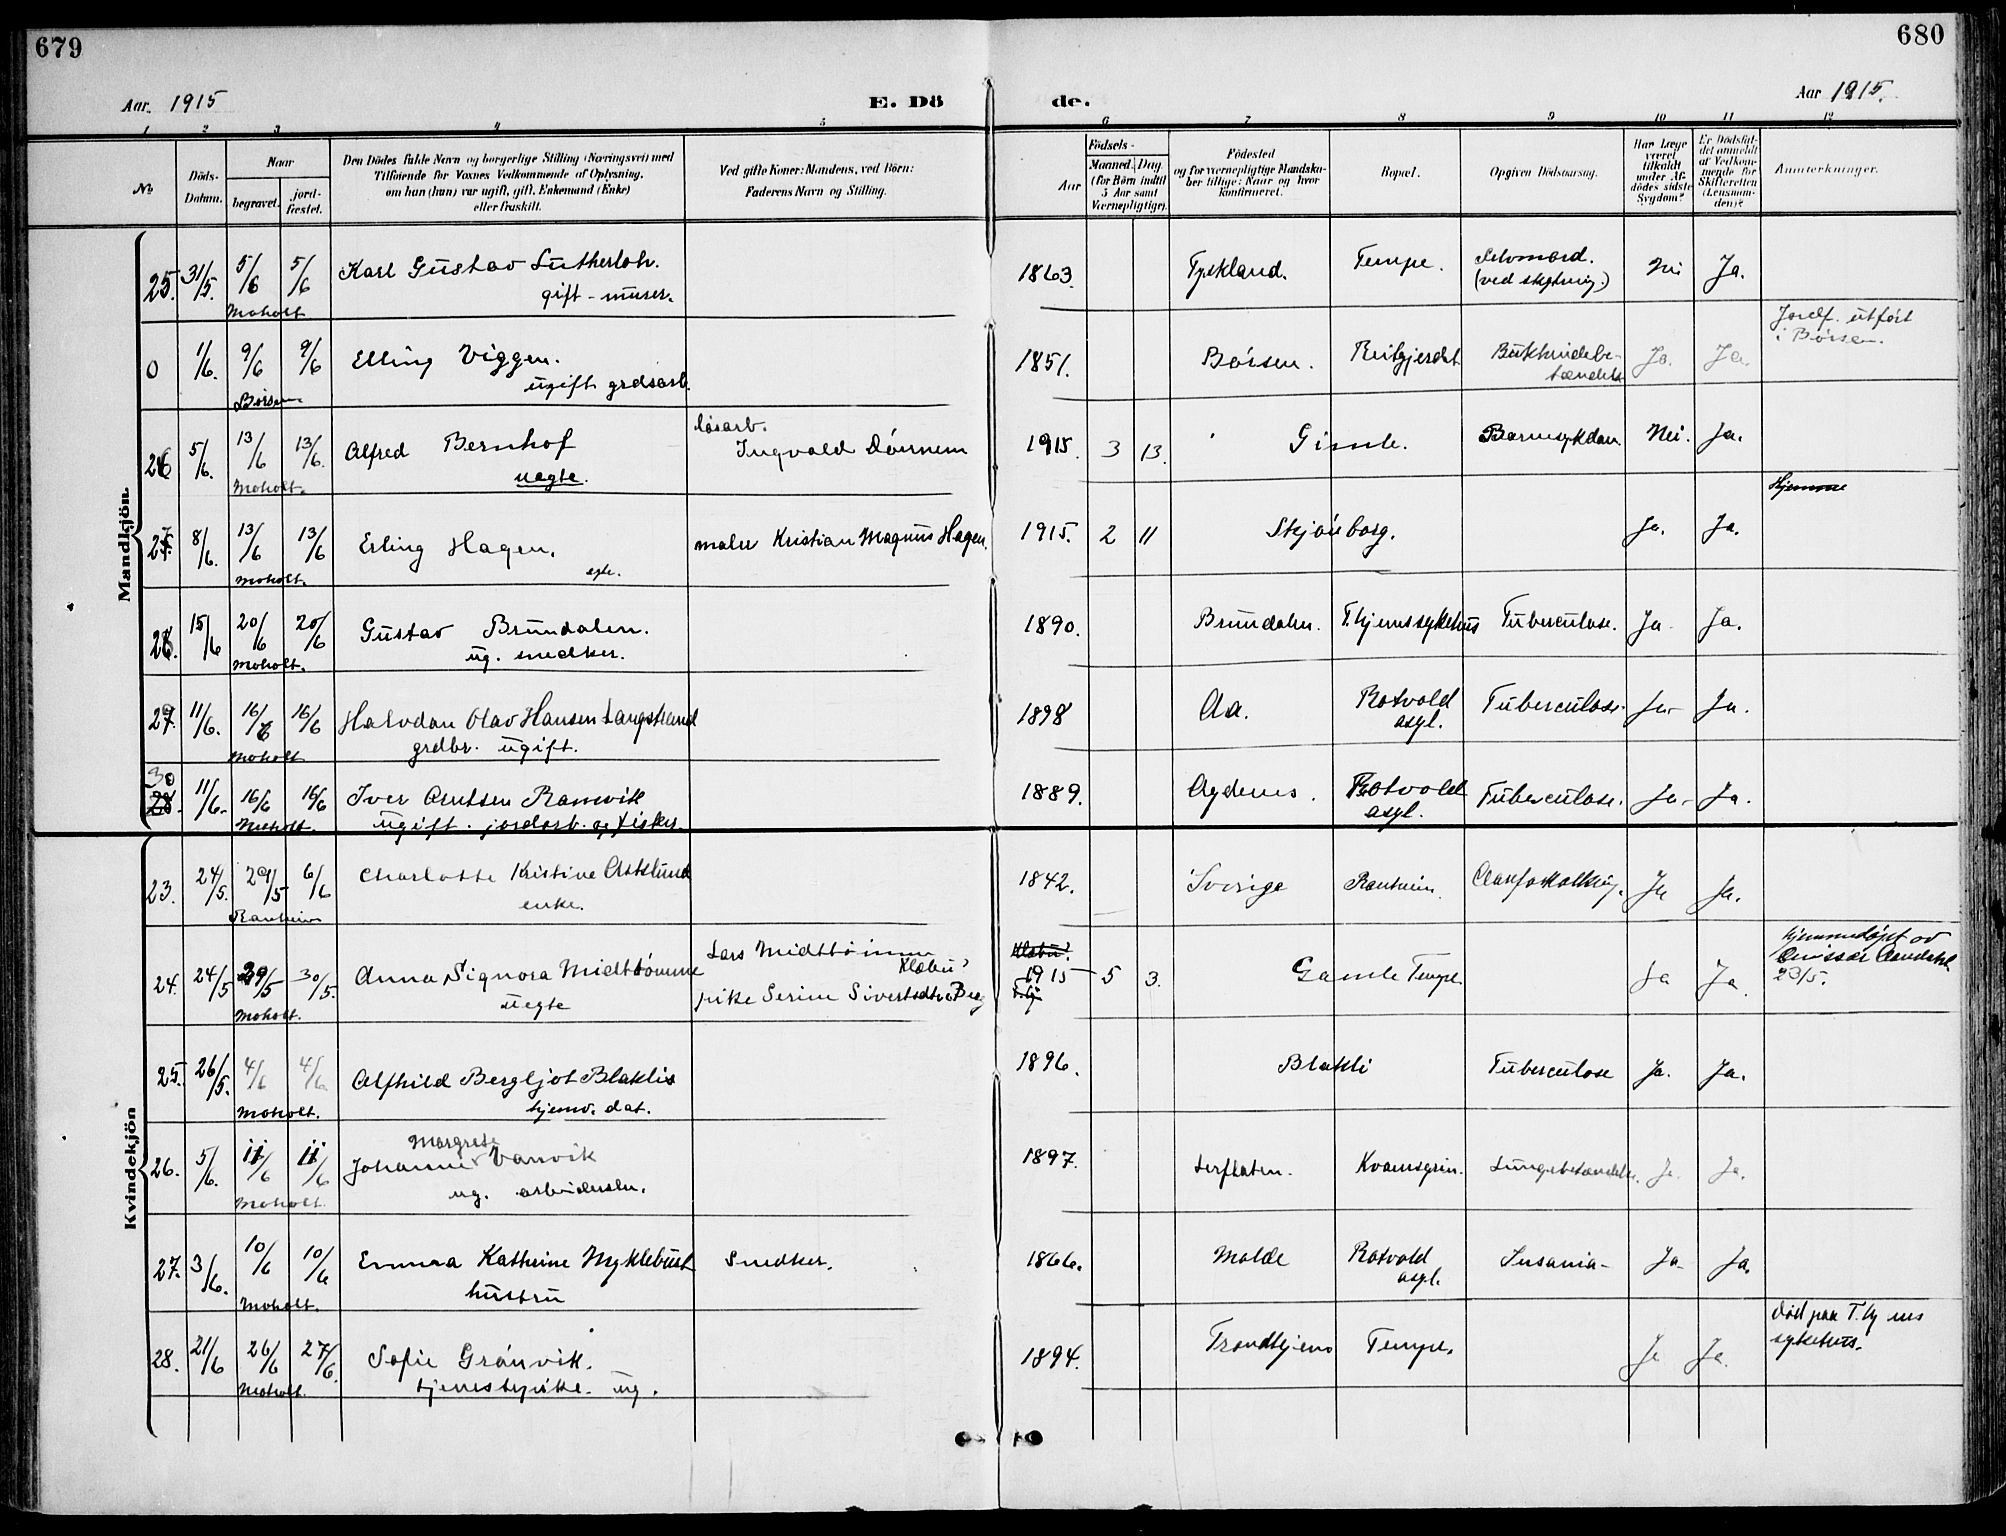 679
680
Aar 1915
E. Dö
de.
Aar 1915.
1 2 3 4 5 6 7 8 9 10 11 12
No.
Döds-
Datum.
Naar
begravet.
jord-
fæstet.
Den Dödes fulde Navn og borgerlige Stilling (Næringsvei) med
Tilföiende for Voxnes Vedkommende af Oplysning,
om han (hun) var ugift, gift, Enkemand (Enke)
eller fraskilt.
Ved gifte Koner: Mandens, ved Börn:
Faderens Navn og Stilling.
Födsels-
Aar
Maaned.
Dag
(for Börn indtil
5 Aar samt
Værnepligtige).
Födested
og for værnepligtige Mandska-
ber tillige: Naar og hvor
konfirmeret.
Bopæl.
Opgiven Dödsaarsag.
Har Læge
været
tilkaldt
under Af-
dödes sidste
Sygdom?
Er Dödsfal-
det anmeldt
af Vedkom-
mende for
Skifteretten
(Lensman-
den)?
Anmerkninger.
Mandkjön.
25. 31/5. 5/6 5/6 Karl Gustav Lutherloh. 1863. Tyskland. Tempe. Selvmord. Nei Ja.
Moholt gift - murer. (ved skytning.)
0 1/6. 9/6 9/6 Elling Viggen. 1851. Börsen. Reitgjerdet Bukhindebe- Ja. Ja. Jordf. utført
Börsen. ugift grdsarb. tændelse i Börsen.
26 5/6. 13/6 13/6. Alfred Bernhof lösarb. 1915. 3 13. Gimle. Barnesykdom. Nei. Ja.
Moholt. uegte. Ingvald Dörnem
27. 8/6. 13/6 13/6 Erling Hagen. maler Kristian Magnus Hagen. 1915. 2 11 Skjönborg. Ja. Ja. Hjemme
Moholt. egte.
28. 15/6 20/6 20/6 Gustav Brundalen. 1890. Brundalen. T.hjems sykehus Tuberculose. Ja. Ja.
Moholt. ug. snedker.
29. 11/6. 16/6 16/6 Halvdan Olav Hansen Langstrand 1898 Aa. Rotvold Tuberculose. Ja. Ja.
Moholt grdbr. ugift. asyl.
30
28. 11/6. 16/6 16/6 Iver Arntsen Ramvik 1889. Agdenes. Rotvold Tuberculose. Ja. Ja.
Moholt. ugift. jordarb. og fisker. asyl.
Kvindekjön
23. 24/5. 29/5 6/6 Charlotte Kristine Asklund 1842. Sverige Ranheim. Aareforkalkning. Ja Ja.
Ranheim enke.
24. 24/5 29/5 30/5. Anna Signora Midttömme Lars Midttömme Klæbu 1915 5 3. Gamle Tempe. Ja Ja. hjemmedöpt av
Moholt. uegte pike Serine Sivertsdtr Berg 23/5.
25. 26/5. 4/6 4/6. Alfhild Bergljot Blaklis 1896. Blakli Tuberculose Ja. Ja.
Moholt. hjemv. dat.
26. 5/6. 11/6 11/6 Johanne Margrete Vanvik 1897. Lerflaten. Kvamsgrin. Lungebetændelse. Ja. Ja.
Moholt. ug. arbeiderske.
27. 3/6. 10/6 10/6 Emma Kathrine Myklebust Snedker. 1866. Molde Rotvold Insania - Ja. Ja.
Moholt. hustru asyl.
28. 21/6 26/6 27/6. Sofie Grönvik. 1894. Trondhjem Tempe. Ja Ja. Död paa T.hj ems
Moholt. tjenestepike. ug. sykehus.